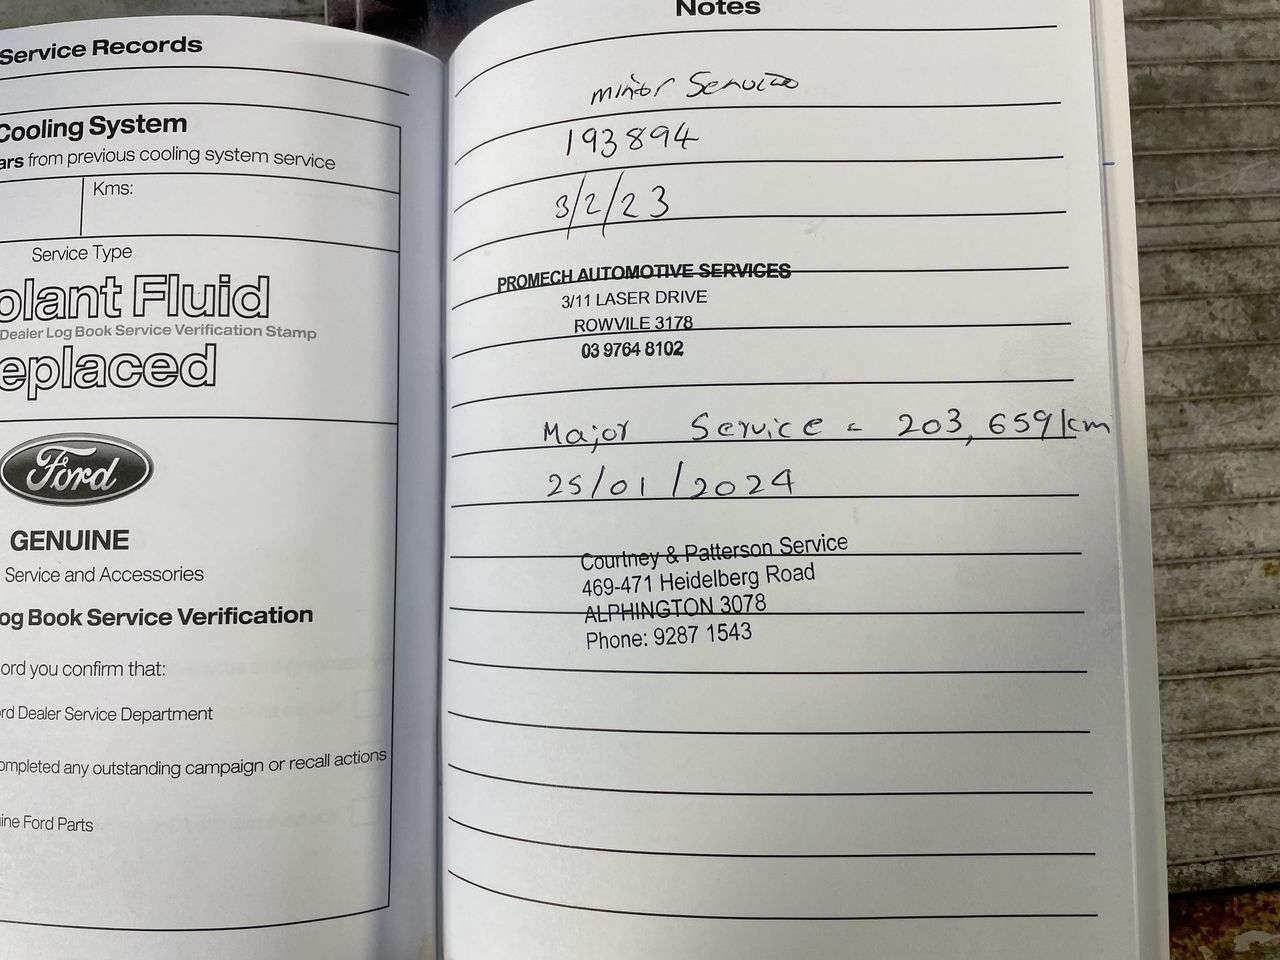 Service Records
Cooling System
ars from previous cooling system service
Kms:
Service Type
olant Fluid
Dealer Log Book Service Verification Stamp
eplaced
Ford
GENUINE
Service and Accessories
og Book Service Verification
ord you confirm that:
rd Dealer Service Department
ompleted any outstanding campaign or recall actions
ine Ford Parts
Notes
minor Service
193894
3/2/23
PROMECH AUTOMOTIVE SERVICES
3/11 LASER DRIVE
ROWVILE 3178
03 9764 8102
Major Service = 203,659km
25/01/2024
Courtney & Patterson Service
469-471 Heidelberg Road
ALPHINGTON 3078
Phone: 9287 1543